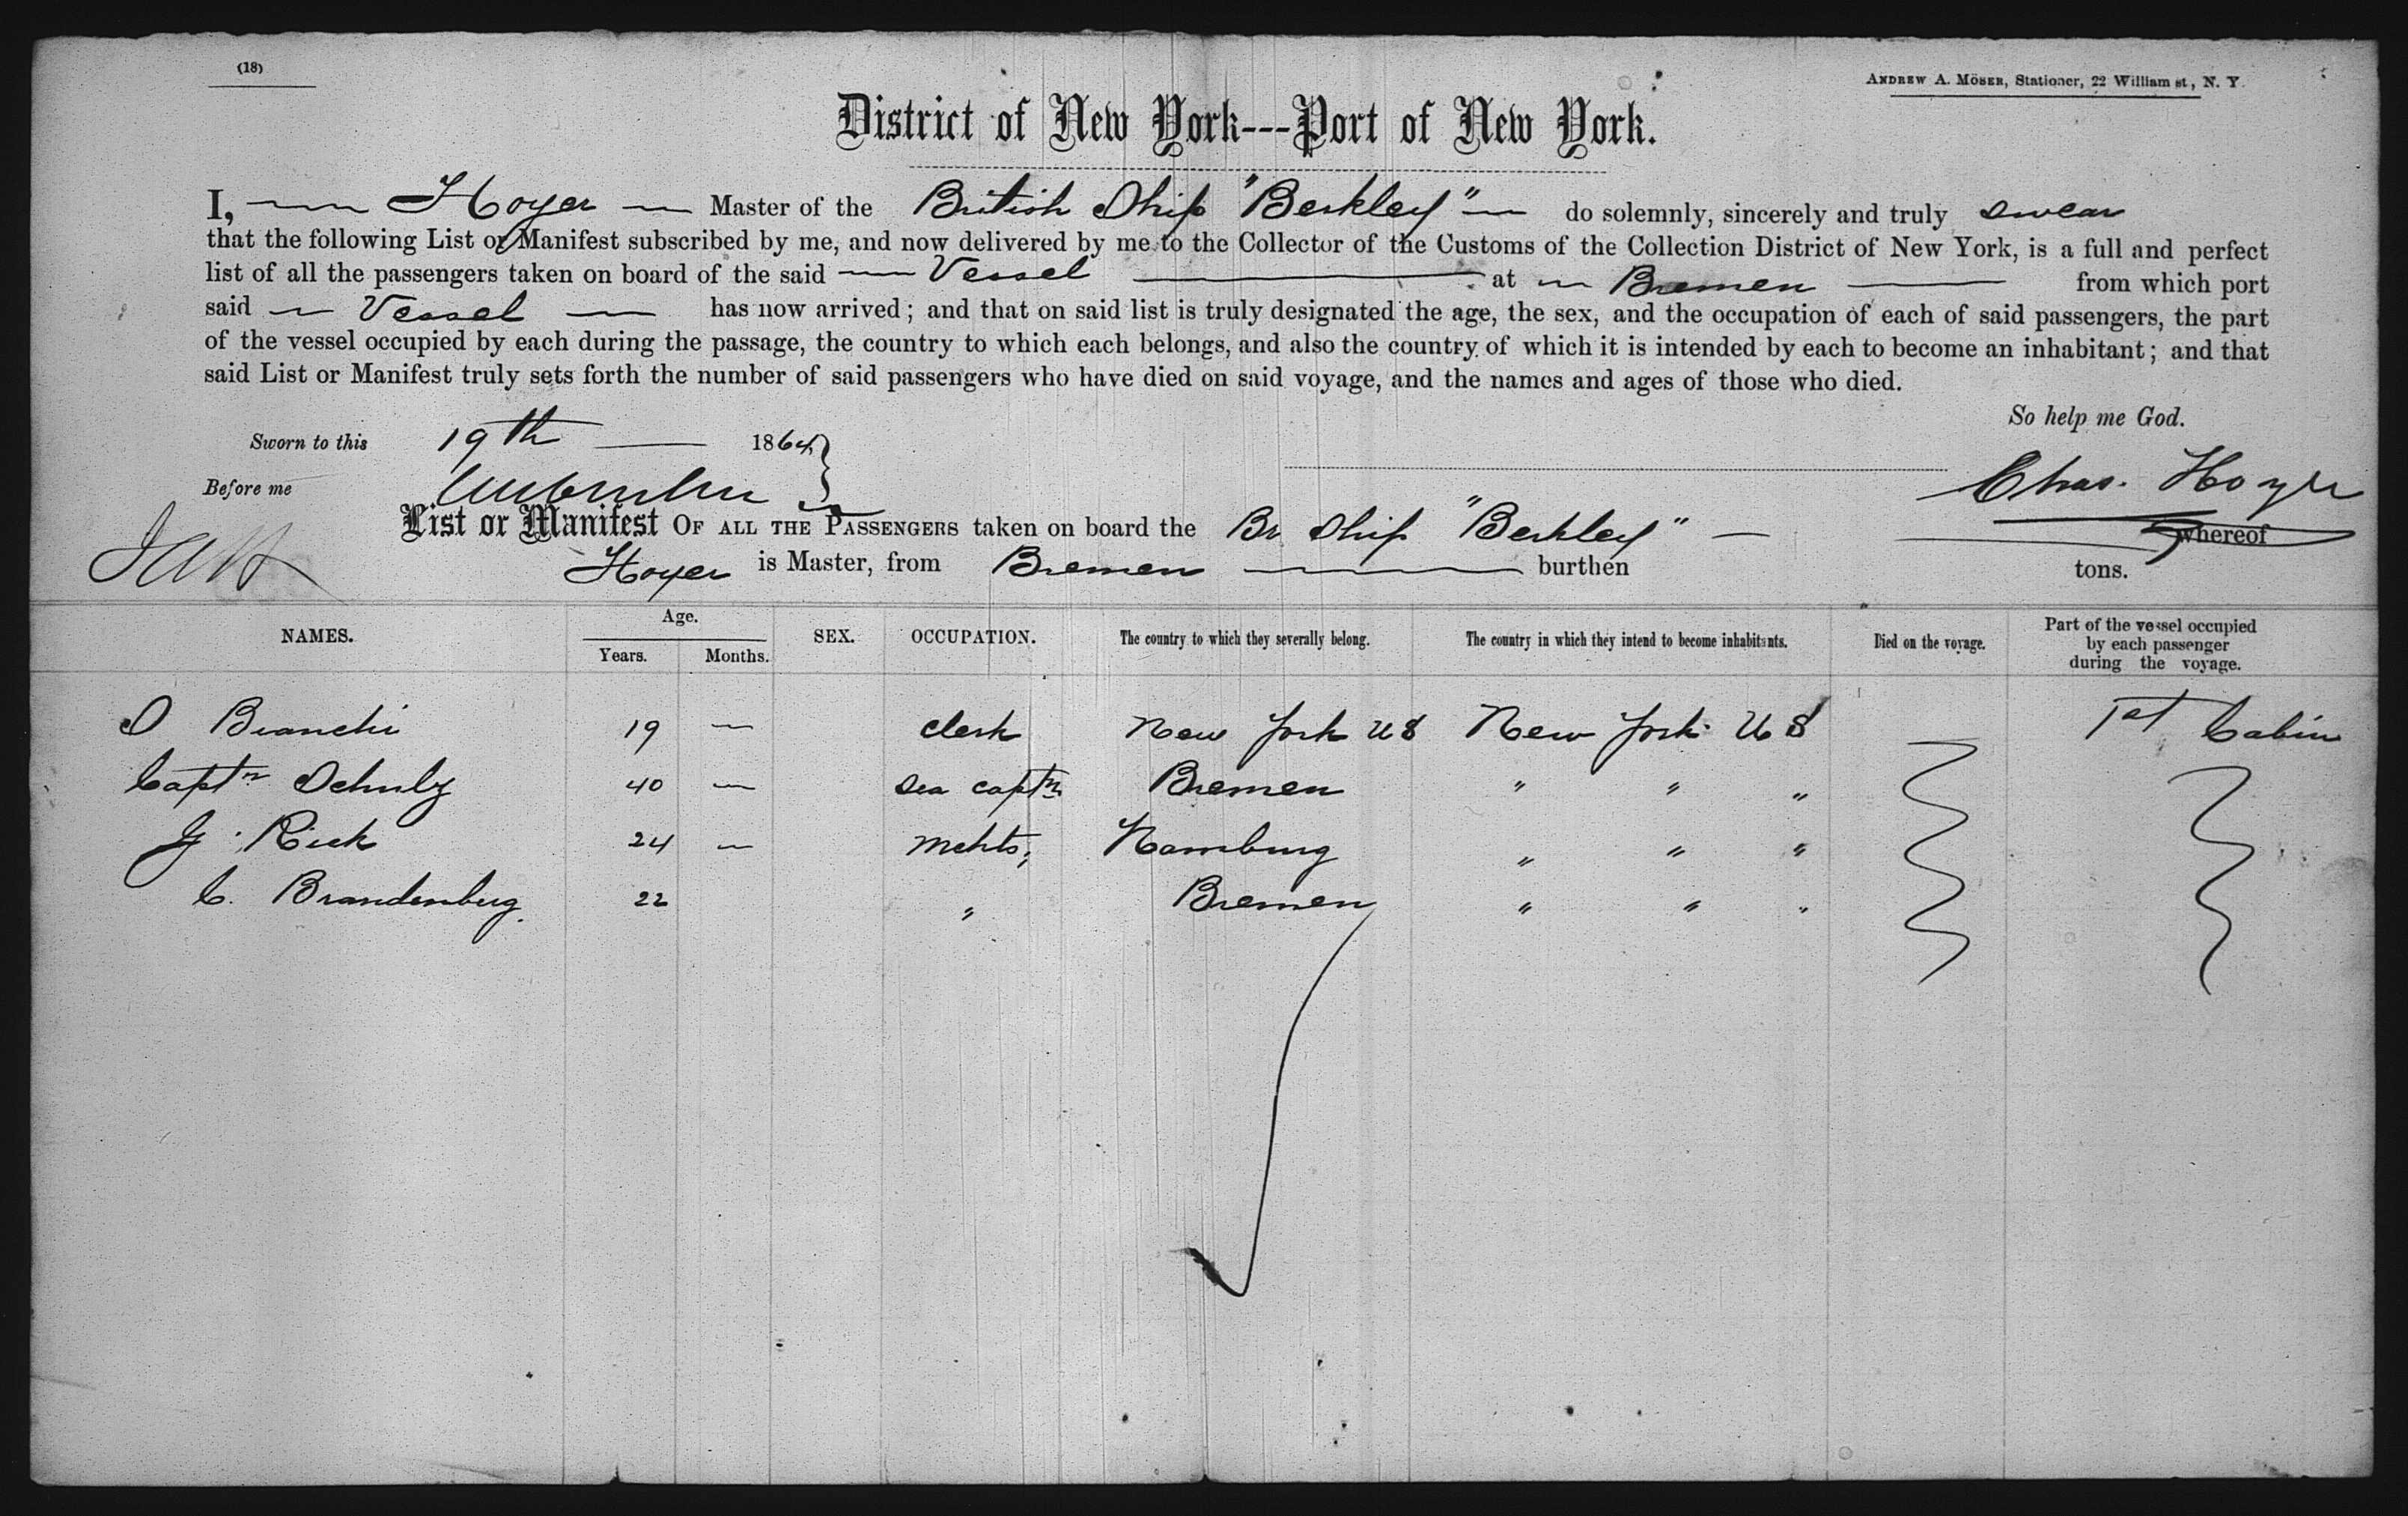 (18)
ANDREW A. MÖSER, Stationer, 22 William st, N. Y.
District of New York---Port of New York.
I, Hoyer Master of the British Ship "Berkley" do solemnly, sincerely and truly swear
that the following List or Manifest subscribed by me, and now delivered by me to the Collector of the Customs of the Collection District of New York, is a full and perfect
list of all the passengers taken on board of the said Vessel at Bremen from which port
said Vessel has now arrived; and that on said list is truly designated the age, the sex, and the occupation of each of said passengers, the part
of the vessel occupied by each during the passage, the country to which each belongs, and also the country of which it is intended by each to become an inhabitant; and that
said List or Manifest truly sets forth the number of said passengers who have died on said voyage, and the names and ages of those who died.
So help me God.
Sworn to this 19th 1864
Before me
Chas. Hoyer
List or Manifest OF ALL THE PASSENGERS taken on board the Br Ship "Berkley" whereof
Hoyer is Master, from Bremen burthen tons.
NAMES. Age. Years. Months. SEX. OCCUPATION. The country to which they severally belong. The country in which they intend to become inhabitants. Died on the voyage. Part of the vessel occupied by each passenger during the voyage.
Bianchi 19 — clerk New York US New York US 1st Cabin
Captn Schulz 40 — Sea captn Bremen " " "
Rieck 24 — Mchts; Hamburg " " "
C. Brandenburg. 22 " Bremen " " "